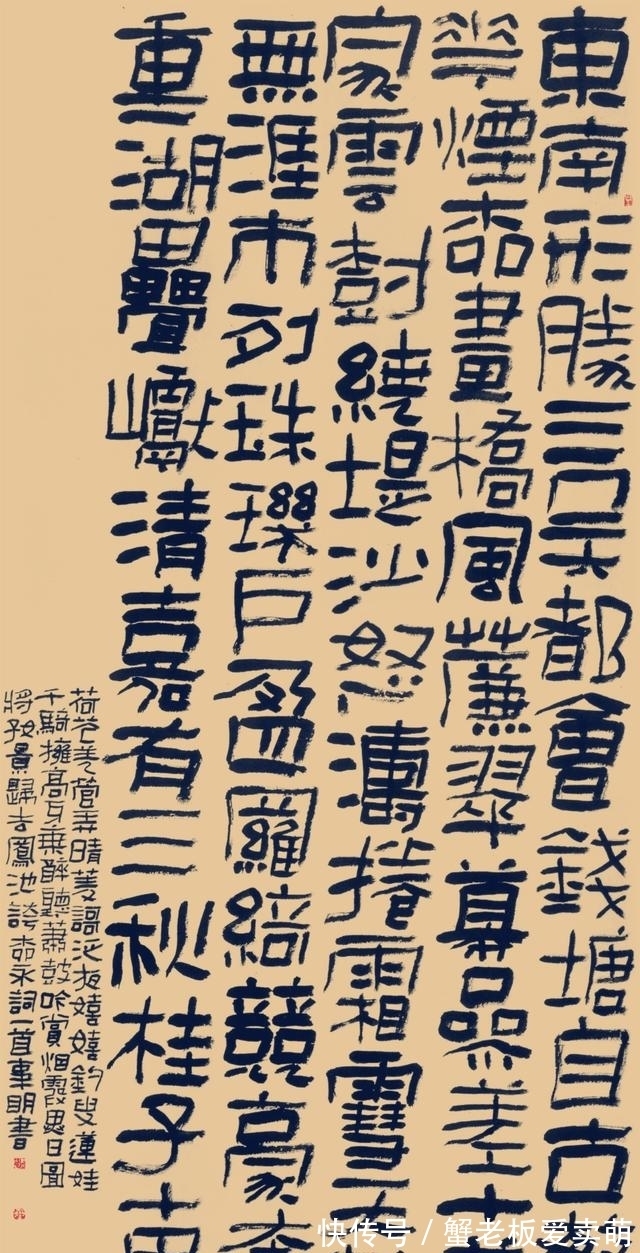 東南形勝三吳都會錢塘自古
華煙柳畫橋風簾翠幕參差十
家雲樹繞堤沙怒濤捲霜雪
無涯市列珠璣戶盈羅綺競豪
重湖疊巘清嘉有三秋桂子十
荷花羌管弄晴菱謌泛夜嬉嬉釣叟蓮娃
千騎擁高牙乘醉聽蕭鼓吟賞烟霞異日圖
將好景歸去鳳池誇柳永詞一首明書
快传号 / 蟹老板爱卖萌